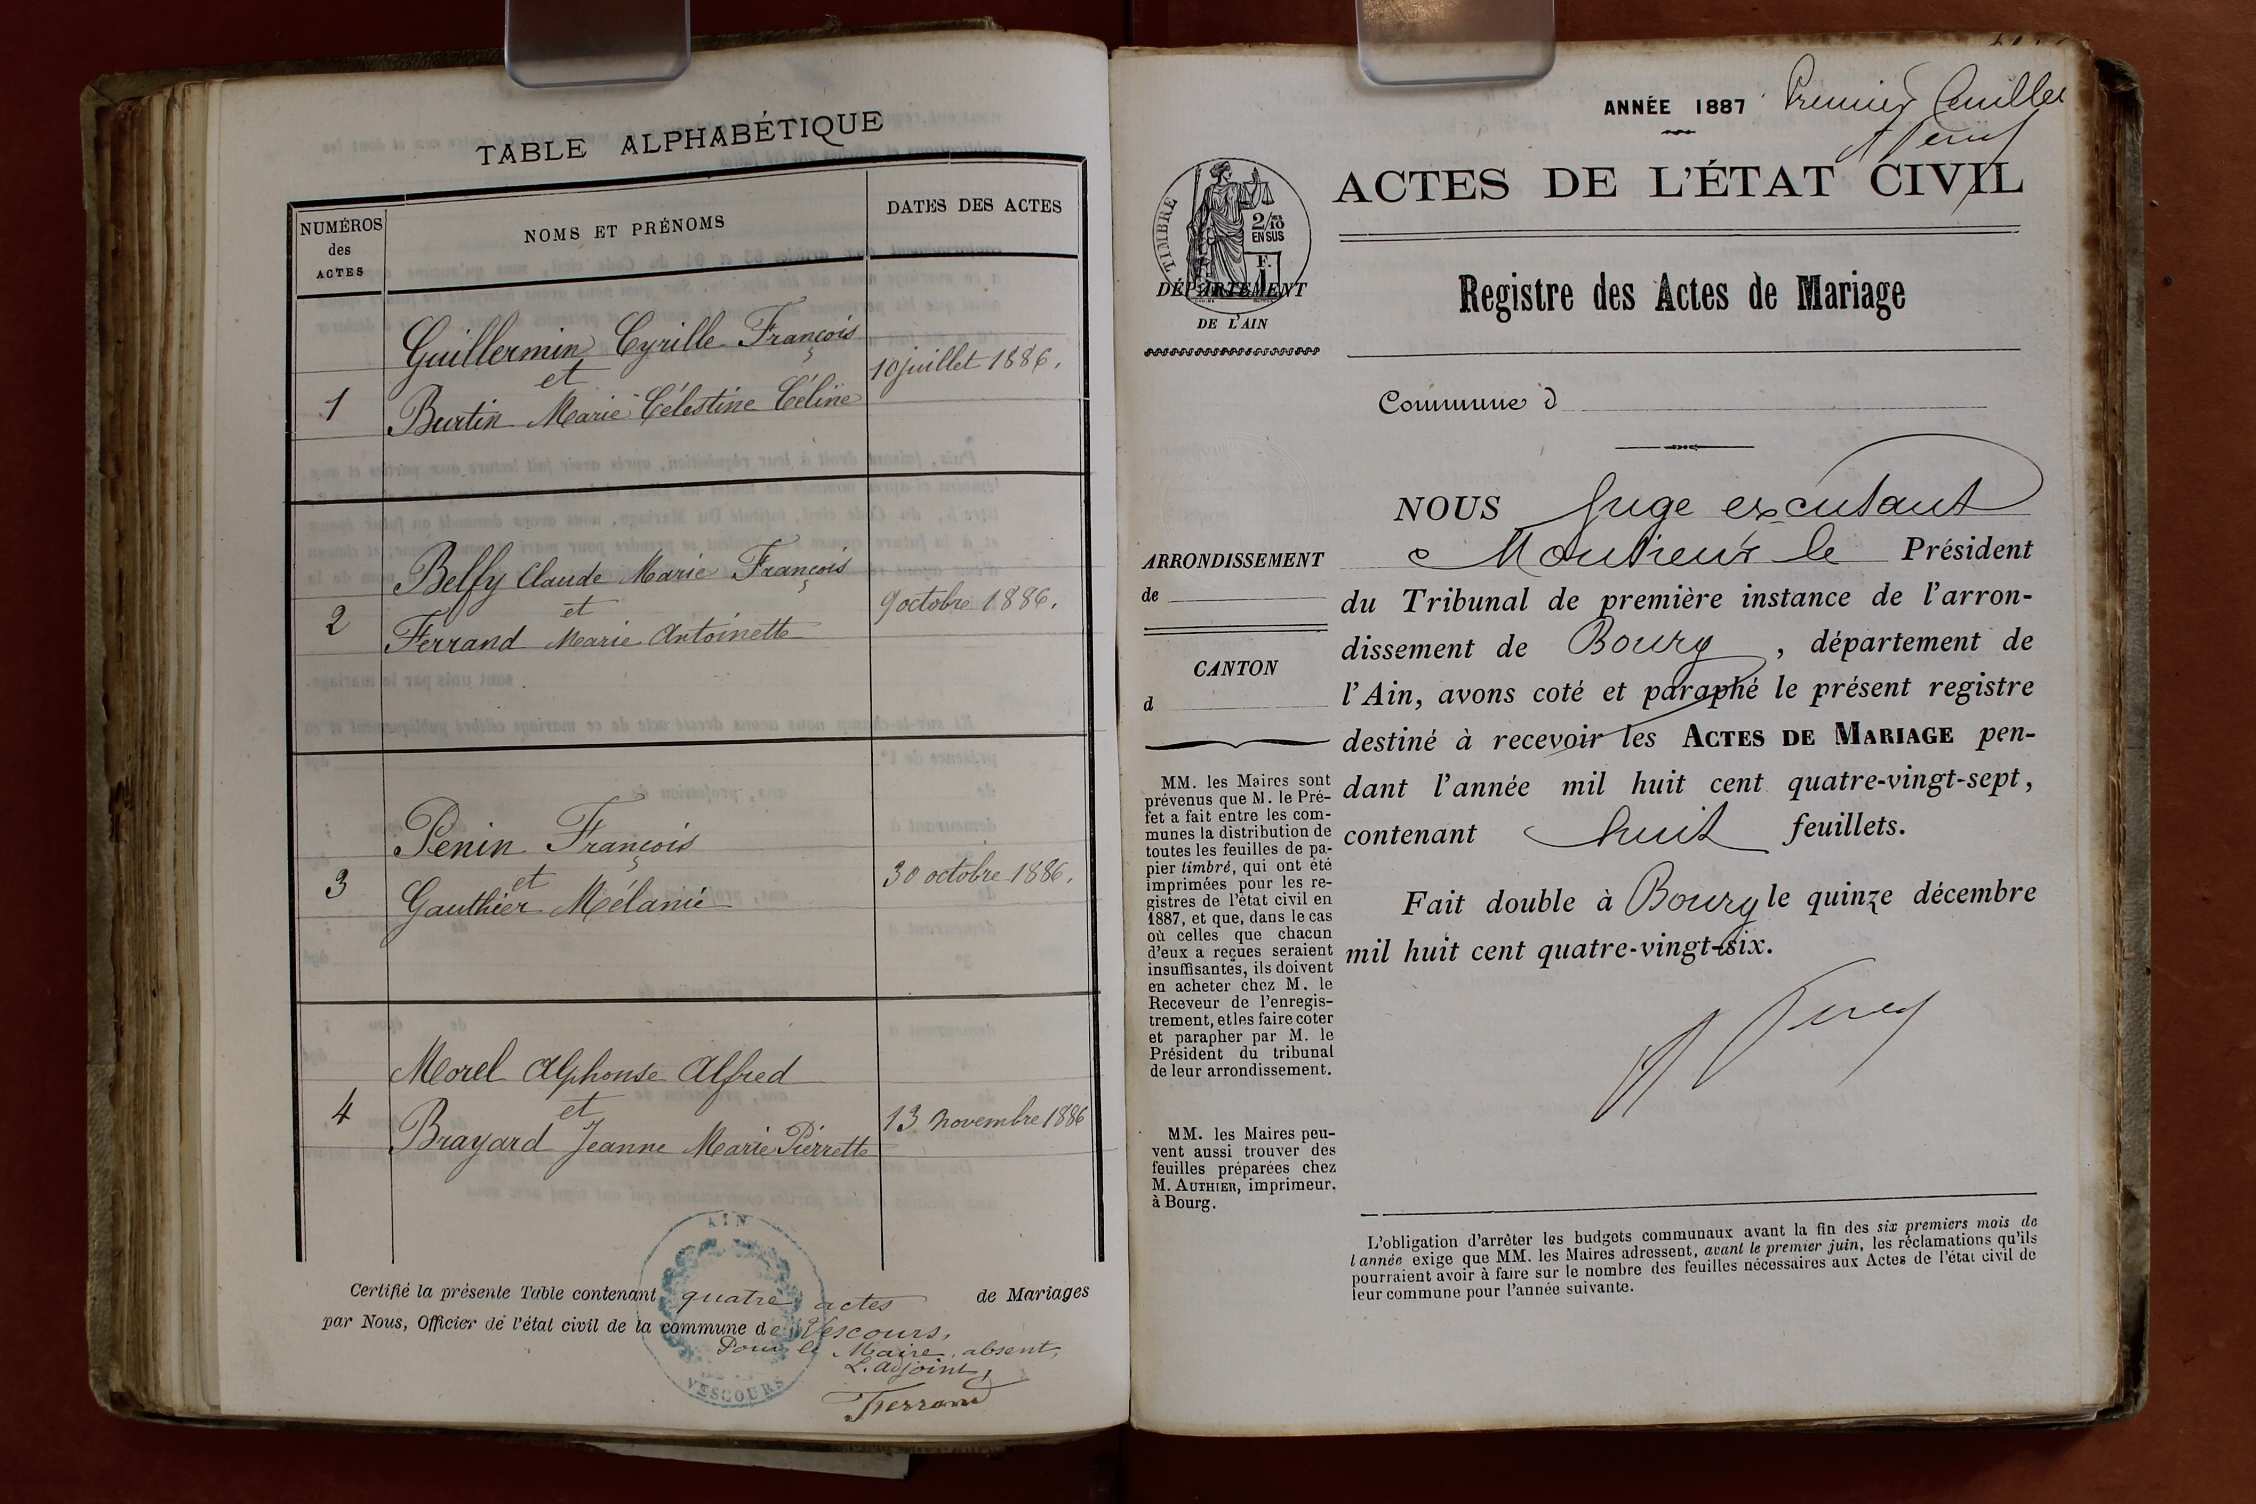 TABLE ALPHABÉTIQUE
NUMÉROS
des
ACTES
NOMS ET PRÉNOMS
DATES DES ACTES
1
Guillermin Cyrille François
et
Burtin Marie Célestine Céline
10 juillet 1886.
2
Belfy Claude Marie François
et
Ferrand Marie Antoinette
9 octobre 1886.
3
Penin François
et
Gauthier Mélanie
30 octobre 1886.
4
Morel Alphonse Alfred
et
Brayard Jeanne Marie Pierrette
13 novembre 1886
Certifié la présente Table contenant quatre actes de Mariages
par Nous, Officier de l'état civil de la commune de Vescours,
Pour le Maire absent,
L'adjoint,
Ferrand
AIN
VESCOURS
ANNÉE 1887 Premier feuillet
ACTES DE L'ÉTAT CIVIL
TIMBRE
2/10
EN SUS
F.
DÉPARTEMENT
DE L'AIN
Registre des Actes de Mariage
Commune d
NOUS Juge excusant
Monsieur le Président
du Tribunal de première instance de l'arron-
dissement de Bourg, département de
l'Ain, avons coté et paraphé le présent registre
destiné à recevoir les ACTES DE MARIAGE pen-
dant l'année mil huit cent quatre-vingt-sept,
contenant huit feuillets.
Fait double à Bourg le quinze décembre
mil huit cent quatre-vingt-six.
ARRONDISSEMENT
de
CANTON
d
MM. les Maires sont
prévenus que M. le Pré-
fet a fait entre les com-
munes la distribution de
toutes les feuilles de pa-
pier timbré, qui ont été
imprimées pour les re-
gistres de l'état civil en
1887, et que, dans le cas
où celles que chacun
d'eux a reçues seraient
insuffisantes, ils doivent
en acheter chez M. le
Receveur de l'enregis-
trement, et les faire coter
et parapher par M. le
Président du tribunal
de leur arrondissement.
MM. les Maires peu-
vent aussi trouver des
feuilles préparées chez
M. AUTHIER, imprimeur,
à Bourg.
L'obligation d'arrêter les budgets communaux avant la fin des six premiers mois de
l'année exige que MM. les Maires adressent, avant le premier juin, les réclamations qu'ils
pourraient avoir à faire sur le nombre des feuilles nécessaires aux Actes de l'état civil de
leur commune pour l'année suivante.